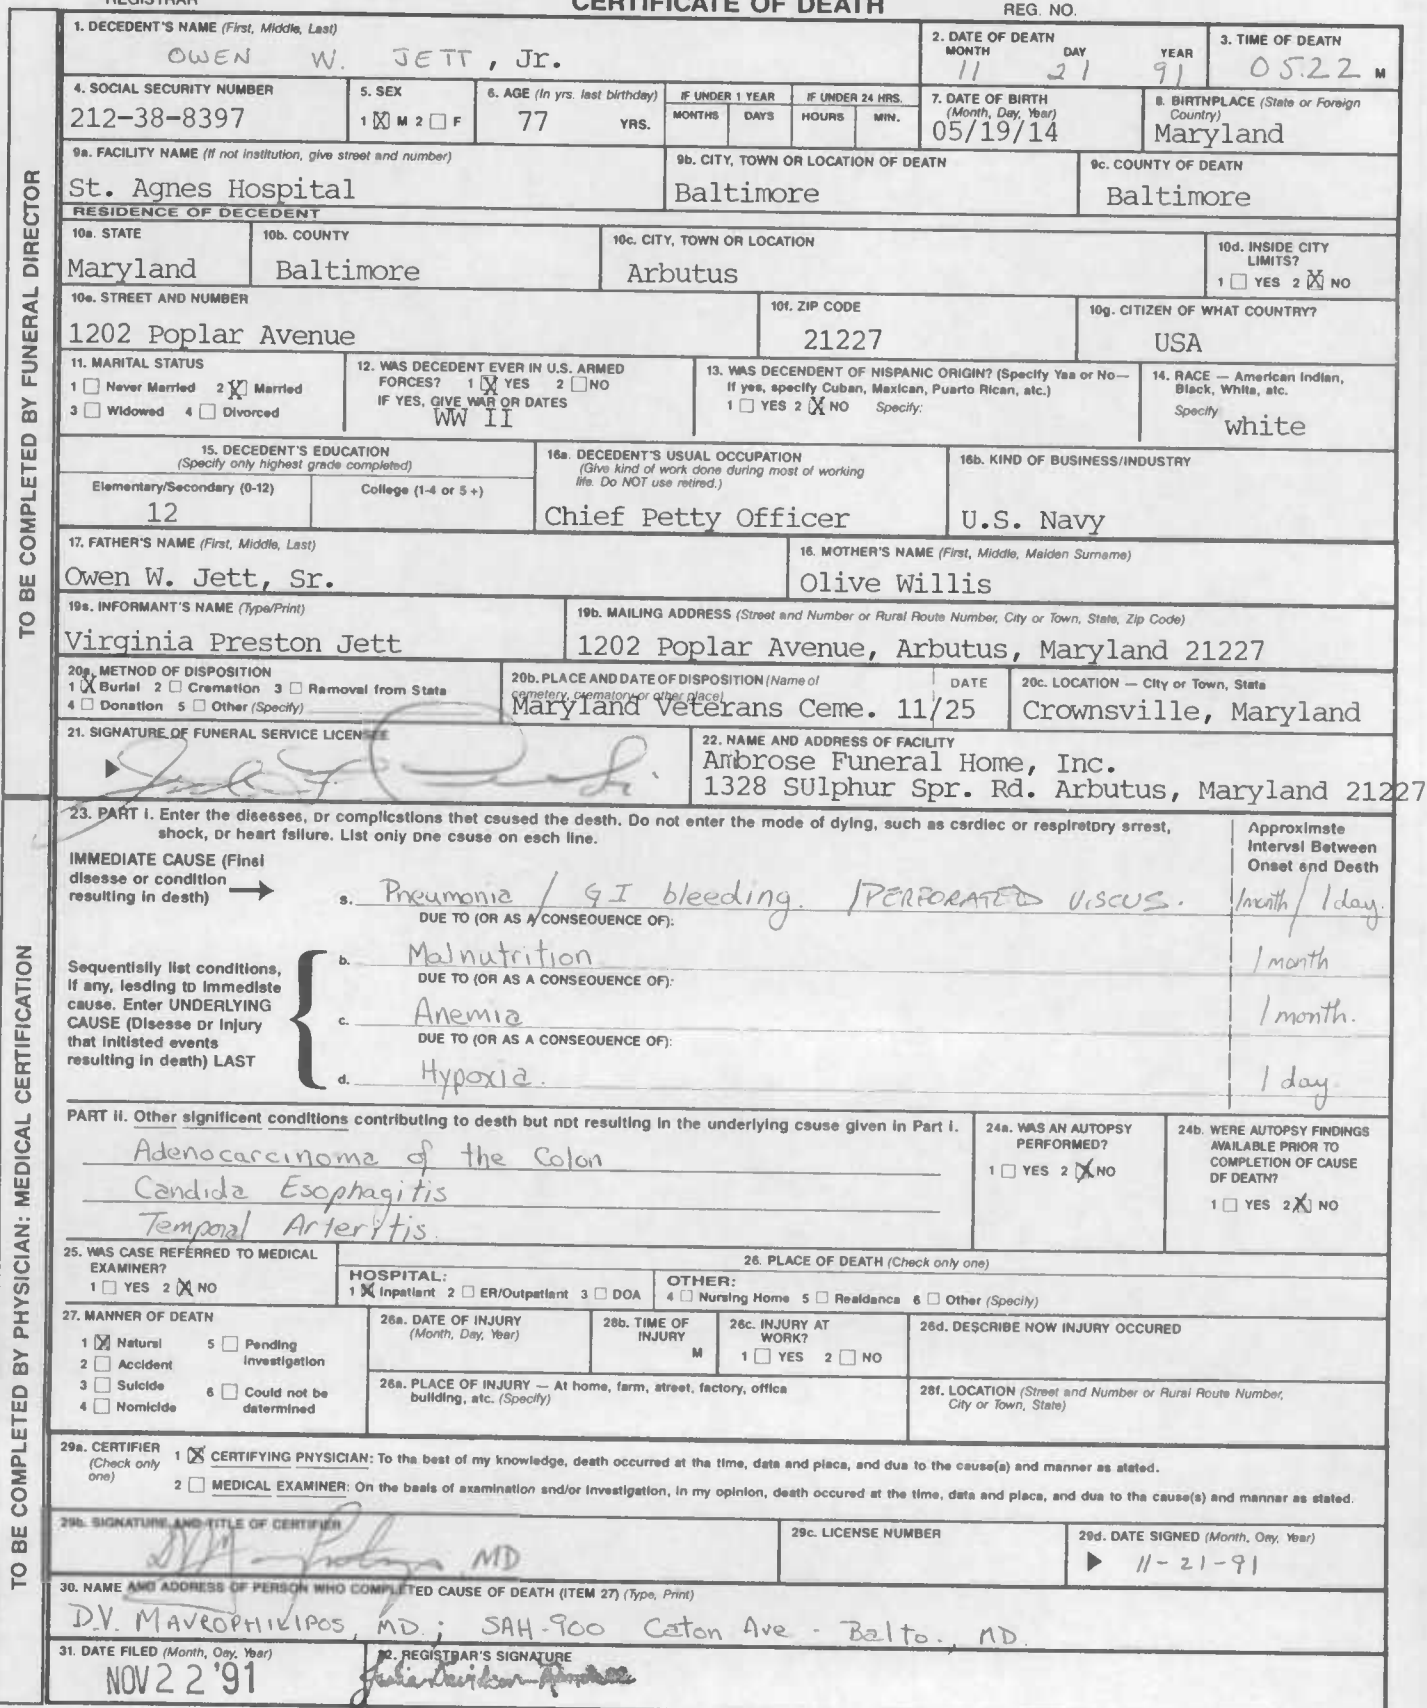 REGISTRAR
CERTIFICATE OF DEATH
REG. NO.
TO BE COMPLETED BY FUNERAL DIRECTOR
1. DECEDENT'S NAME (First, Middle, Last)
OWEN W. JETT, Jr.
2. DATE OF DEATH
MONTH DAY YEAR
11 21 91
3. TIME OF DEATH
0522 M
4. SOCIAL SECURITY NUMBER
212-38-8397
5. SEX
1 ☒ M 2 ☐ F
6. AGE (In yrs. last birthday)
77 YRS.
IF UNDER 1 YEAR
MONTHS DAYS
IF UNDER 24 HRS.
HOURS MIN.
7. DATE OF BIRTH
(Month, Day, Year)
05/19/14
8. BIRTNPLACE (State or Foreign
Country)
Maryland
9a. FACILITY NAME (If not institution, give street and number)
St. Agnes Hospital
9b. CITY, TOWN OR LOCATION OF DEATH
Baltimore
9c. COUNTY OF DEATH
Baltimore
RESIDENCE OF DECEDENT
10a. STATE
Maryland
10b. COUNTY
Baltimore
10c. CITY, TOWN OR LOCATION
Arbutus
10d. INSIDE CITY
LIMITS?
1 ☐ YES 2 ☒ NO
10e. STREET AND NUMBER
1202 Poplar Avenue
10f. ZIP CODE
21227
10g. CITIZEN OF WHAT COUNTRY?
USA
11. MARITAL STATUS
1 ☐ Never Married 2 ☒ Married
3 ☐ Widowed 4 ☐ Divorced
12. WAS DECEDENT EVER IN U.S. ARMED
FORCES? 1 ☒ YES 2 ☐ NO
IF YES, GIVE WAR OR DATES
WW II
13. WAS DECENDENT OF NISPANIC ORIGIN? (Specify Yaa or No—
If yes, specify Cuban, Maxican, Puarto Rican, atc.)
1 ☐ YES 2 ☒ NO Specify:
14. RACE — Amarican Indian,
Black, Whita, atc.
Specify
white
15. DECEDENT'S EDUCATION
(Specify only highest grade completed)
Elamentary/Secondary (0-12)
12
Collega (1-4 or 5+)
16a. DECEDENT'S USUAL OCCUPATION
(Give kind of work done during most of working
life. Do NOT use retired.)
Chief Petty Officer
16b. KIND OF BUSINESS/INDUSTRY
U.S. Navy
17. FATHER'S NAME (First, Middle, Last)
Owen W. Jett, Sr.
16. MOTHER'S NAME (First, Middle, Maiden Surname)
Olive Willis
19a. INFORMANT'S NAME (Type/Print)
Virginia Preston Jett
19b. MAILING ADDRESS (Street and Number or Rural Route Number, City or Town, State, Zip Code)
1202 Poplar Avenue, Arbutus, Maryland 21227
20a. METNOD OF DISPOSITION
1 ☒ Burial 2 ☐ Cramation 3 ☐ Ramoval from Stata
4 ☐ Donation 5 ☐ Othar (Specify)
20b. PLACE AND DATE OF DISPOSITION (Name of DATE
cemetery, crematory or other place)
Maryland Veterans Ceme. 11/25
20c. LOCATION — City or Town, Stata
Crownsville, Maryland
21. SIGNATURE OF FUNERAL SERVICE LICENSEE
22. NAME AND ADDRESS OF FACILITY
Ambrose Funeral Home, Inc.
1328 SUlphur Spr. Rd. Arbutus, Maryland 21227
TO BE COMPLETED BY PHYSICIAN: MEDICAL CERTIFICATION
23. PART I. Enter the diseeses, or complicstions thet csused the death. Do not enter the mode of dying, such as csrdiec or respiretory srrest,
shock, or heart fsilure. List only one csuse on esch line.
Approximste
Intervsl Between
Onset end Death
IMMEDIATE CAUSE (Finel
disesse or condition
resulting in death) →
s. Pneumonia / GI bleeding. / PERFORATED VISCUS. 1month / 1 day.
DUE TO (OR AS A CONSEOUENCE OF):
Sequentislly list conditions,
if any, lesding to immediste
cause. Enter UNDERLYING
CAUSE (Disesse or injury
that initisted events
resulting in death) LAST
b. Malnutrition 1 month
DUE TO (OR AS A CONSEOUENCE OF):
c. Anemia 1 month.
DUE TO (OR AS A CONSEOUENCE OF):
d. Hypoxia. 1 day
PART II. Other significent conditions contributing to desth but not resulting in the underlying csuse given in Part I.
Adenocarcinoma of the Colon
Candida Esophagitis
Temporal Arteritis.
24a. WAS AN AUTOPSY
PERFORMED?
1 ☐ YES 2 ☒ NO
24b. WERE AUTOPSY FINDINGS
AVAILABLE PRIOR TO
COMPLETION OF CAUSE
DF DEATH?
1 ☐ YES 2 ☒ NO
25. WAS CASE REFERRED TO MEDICAL
EXAMINER?
1 ☐ YES 2 ☒ NO
26. PLACE OF DEATH (Check only one)
HOSPITAL:
1 ☒ Inpatiant 2 ☐ ER/Outpatiant 3 ☐ DOA
OTHER:
4 ☐ Nursing Home 5 ☐ Rasidanca 6 ☐ Other (Specify)
27. MANNER OF DEATH
1 ☒ Natursl 5 ☐ Pending
Investigation
2 ☐ Accident
3 ☐ Suicide 6 ☐ Could not be
determined
4 ☐ Nomicide
26a. DATE OF INJURY
(Month, Day, Year)
28b. TIME OF
INJURY
M
26c. INJURY AT
WORK?
1 ☐ YES 2 ☐ NO
26d. DESCRIBE NOW INJURY OCCURED
26a. PLACE OF INJURY — At homa, farm, atreet, factory, offica
building, atc. (Specify)
28f. LOCATION (Street and Number or Rural Route Number,
City or Town, State)
29a. CERTIFIER
(Check only
one)
1 ☒ CERTIFYING PNYSICIAN: To tha best of my knowledge, death occurred at tha time, data and placa, and dua to the cause(a) and manner as atated.
2 ☐ MEDICAL EXAMINER: On tha basis of axamination snd/or Investigation, in my opinion, death occured at the time, data and placa, and dua to tha cause(s) and mannar as stated.
29b. SIGNATURE AND TITLE OF CERTIFIER
MD
29c. LICENSE NUMBER
29d. DATE SIGNED (Month, Day, Year)
11-21-91
30. NAME AND ADDRESS OF PERSON WHO COMPLETED CAUSE OF DEATH (ITEM 27) (Type, Print)
D.V. MAVROPHILIPOS, MD.; SAH-900 Caton Ave - Balto., MD.
31. DATE FILED (Month, Day, Year)
NOV 22 '91
32. REGISTRAR'S SIGNATURE